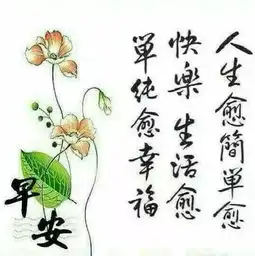 人生愈簡單愈
快樂生活愈
單純愈幸福
早安